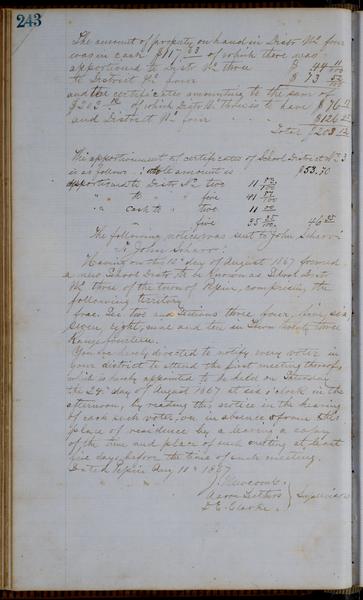 243
The amount of property on hand in Distr No four
was in cash $117.33 of which there was
apportioned to Distr No three $ 44
to District No four $ 73
and the certificates amounting to the sum of
$203 of which Distr No three is to have $76
and District No four $126
Total $203
The apportionment of certificates of School District No 3
is as follows: whole amount is $53.30
apportioned to Distr No two 11
" to " five 41
" cash to " two 11
" " five 35 46
The following notice was sent to John
" John
Having on the 10th day of August 1867 formed
a new School Distr to be known as School Distr
No three of the town of Pepin, comprising the
following territory
frac. Sec two and Sections three four, five, six
seven, eight, nine and ten in Town twenty three
Range fourteen.
You are hereby directed to notify every voter in
your district to attend the first meeting thereof
which is hereby appointed to be held on Thursday
the day of August 1867 at six o'clock in the
afternoon, by reading this notice in the hearing
of each such voter, or in absence from the
place of residence by a leaving a copy
of the time and place of such meeting at least
five days before the time of such meeting.
Dated Pepin Aug 10 1867
J. Newcomb
Aaron
D. E. Clarke
Supervisors